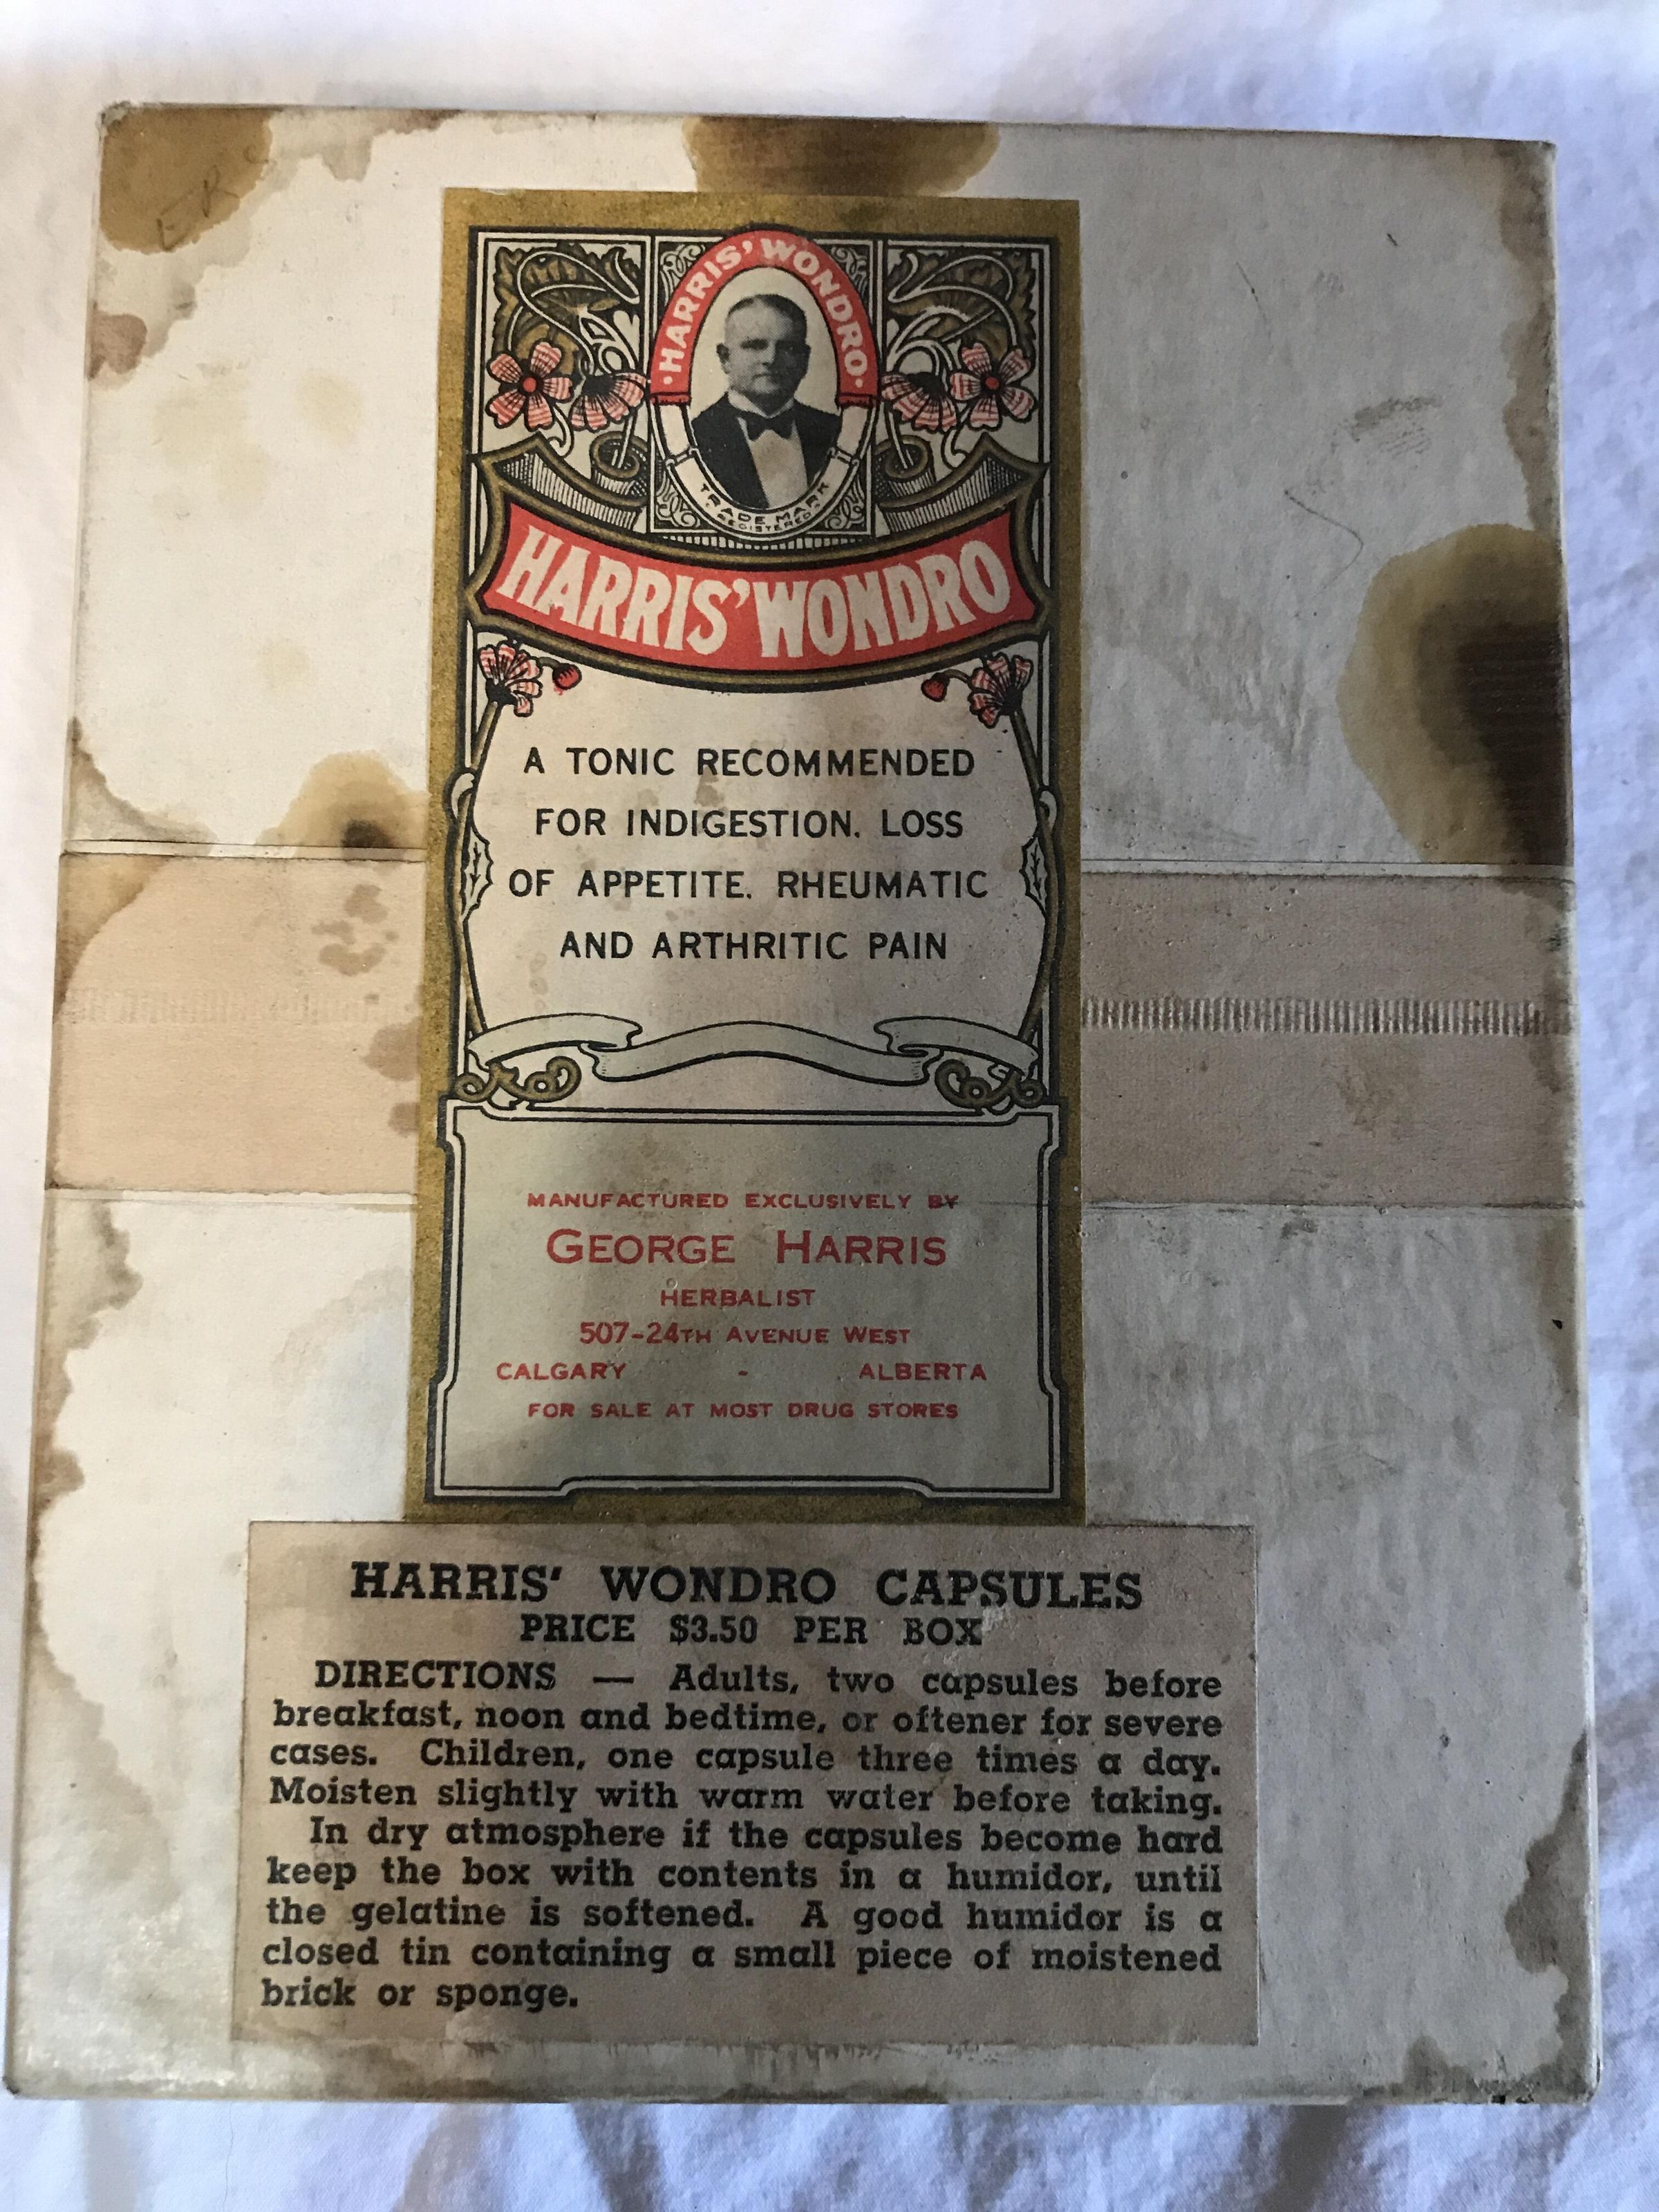 HARRIS' WONDRO
TRADE MARK
REGISTERED
HARRIS' WONDRO
A TONIC RECOMMENDED
FOR INDIGESTION. LOSS
OF APPETITE. RHEUMATIC
AND ARTHRITIC PAIN
MANUFACTURED EXCLUSIVELY BY
GEORGE HARRIS
HERBALIST
507-24TH AVENUE WEST
CALGARY - ALBERTA
FOR SALE AT MOST DRUG STORES
HARRIS' WONDRO CAPSULES
PRICE $3.50 PER BOX
DIRECTIONS — Adults, two capsules before
breakfast, noon and bedtime, or oftener for severe
cases. Children, one capsule three times a day.
Moisten slightly with warm water before taking.
In dry atmosphere if the capsules become hard
keep the box with contents in a humidor, until
the gelatine is softened. A good humidor is a
closed tin containing a small piece of moistened
brick or sponge.